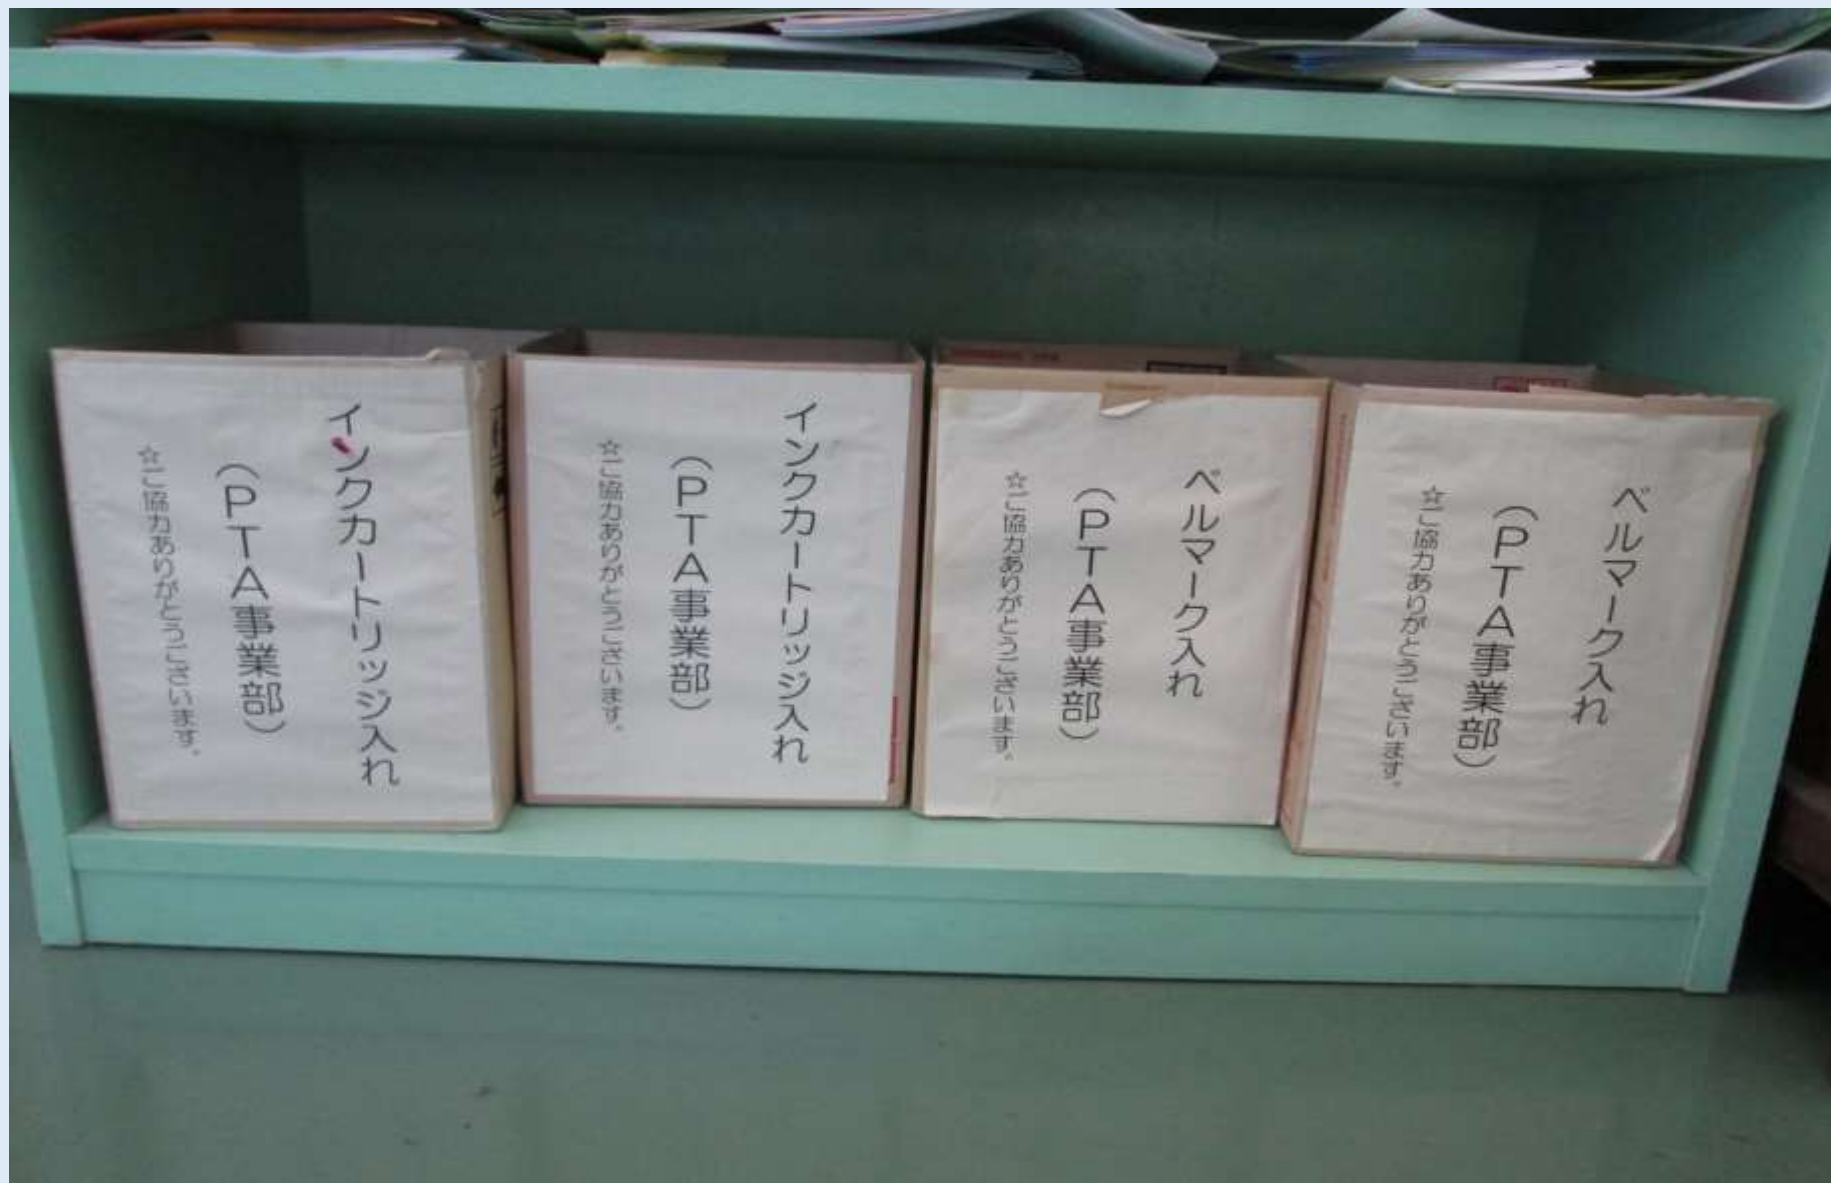 インクカートリッジ入れ
（PTA事業部）
☆ご協力ありがとうございます。
インクカートリッジ入れ
（PTA事業部）
☆ご協力ありがとうございます。
ベルマーク入れ
（PTA事業部）
☆ご協力ありがとうございます。
ベルマーク入れ
（PTA事業部）
☆ご協力ありがとうございます。